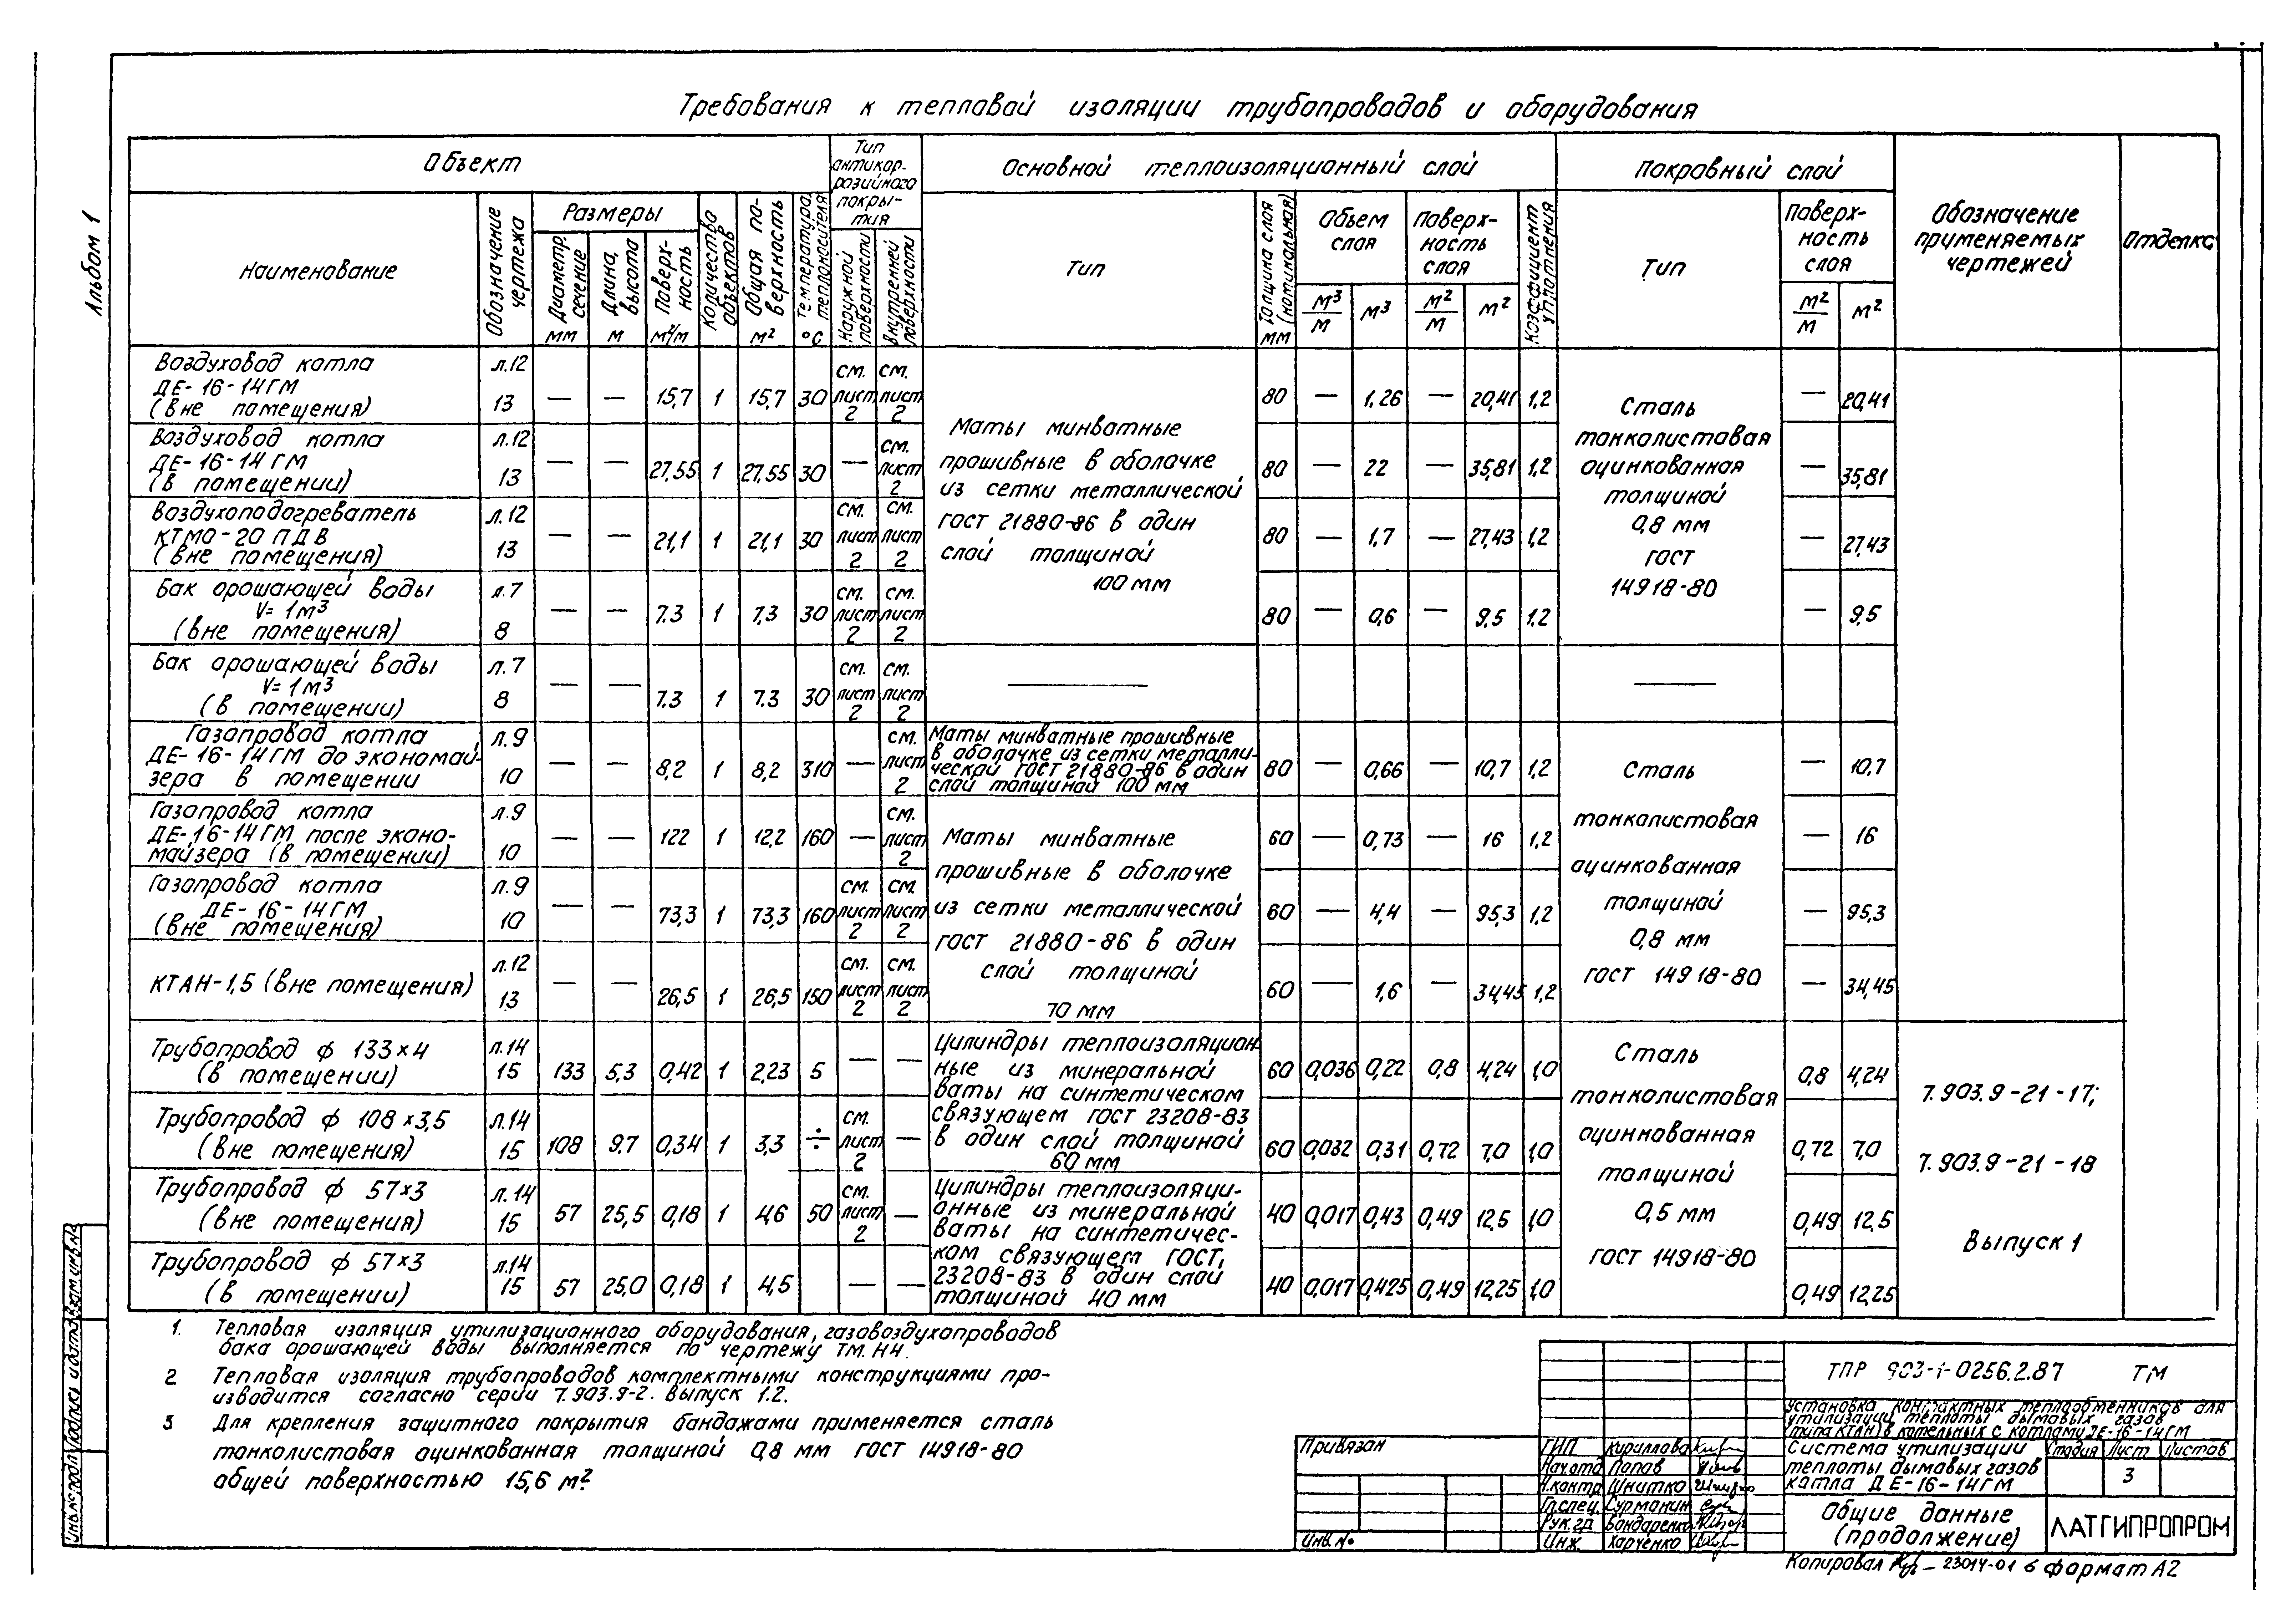 Альбом 1
Требования к тепловой изоляции трубопроводов и оборудования
Объект
Тип антикор-розийного покры-тия
Основной теплоизоляционный слой
Покровный слой
Обозначение применяемых чертежей
Отделка
Наименование
Обозначение чертежа
Размеры
Диаметр, сечение мм
Длина, высота м
Поверх-ность м²/м
Количество объектов
Общая по-верхность м²
Температура теплоносителя °С
Наружной поверхности
Внутренней поверхности
Тип
Толщина слоя (номинальная) мм
Объем слоя
М³/М
М³
Поверх-ность слоя
М²/М
М²
Коэффициент уплотнения
Тип
Поверх-ность слоя
М²/М
М²
Воздуховод котла ДЕ-16-14ГМ (вне помещения) л.12 13 — — 15,7 1 15,7 30 см. лист 2 см. лист 2 80 — 1,26 — 20,41 1,2 — 20,41
Воздуховод котла ДЕ-16-14ГМ (в помещении) л.12 13 — — 27,55 1 27,55 30 — см. лист 2 80 — 22 — 35,81 1,2 — 35,81
Воздухоподогреватель КТМО-20 ПДВ (вне помещения) л.12 13 — — 21,1 1 21,1 30 см. лист 2 см. лист 2 80 — 1,7 — 27,43 1,2 — 27,43
Бак орошающей воды V=1м³ (вне помещения) л.7 8 — — 7.3 1 7,3 30 см. лист 2 см. лист 2 80 — 0,6 — 9,5 1,2 — 9,5
Маты минватные
прошивные в оболочке
из сетки металлической
ГОСТ 21880-86 в один
слой толщиной
100 мм
Сталь
тонколистовая
оцинкованная
толщиной
0,8 мм
ГОСТ
14918-80
Бак орошающей воды V=1м³ (в помещении) л.7 8 — — 7.3 1 7.3 30 см. лист 2 см. лист 2 — —
Газопровод котла ДЕ-16-14ГМ до экономай-зера в помещении л.9 10 — — 8,2 1 8,2 310 — см. лист 2 80 — 0,66 — 10,7 1,2 — 10,7
Маты минватные прошивные
в оболочке из сетки металли-
ческой ГОСТ 21880-86 в один
слой толщиной 100 мм
Газопровод котла ДЕ-16-14ГМ после эконо-майзера (в помещении) л.9 10 — — 122 1 12,2 160 — см. лист 2 60 — 0,73 — 16 1,2 — 16
Газопровод котла ДЕ-16-14ГМ (вне помещения) л.9 10 — — 73,3 1 73,3 160 см. лист 2 см. лист 2 60 — 4,4 — 95,3 1,2 — 95,3
КТАН-1,5 (вне помещения) л.12 13 — — 26,5 1 26,5 150 см. лист 2 см. лист 2 60 — 1,6 — 34,45 1,2 — 34,45
Маты минватные
прошивные в оболочке
из сетки металлической
ГОСТ 21880-86 в один
слой толщиной
70 мм
Сталь
тонколистовая
оцинкованная
толщиной
0,8 мм
ГОСТ 14918-80
Трубопровод ф 133×4 (в помещении) л.14 15 133 5,3 0,42 1 2,23 5 — — 60 0,036 0,22 0,8 4,24 1,0 0,8 4,24
Трубопровод ф 108×3,5 (вне помещения) л.14 15 108 9.7 0,34 1 3,3 ÷ см. лист 2 — 60 0,032 0,31 0,72 7,0 1,0 0,72 7,0
Цилиндры теплоизоляцион-
ные из минеральной
ваты на синтетическом
связующем ГОСТ 23208-83
в один слой толщиной
60 мм
Трубопровод ф 57×3 (вне помещения) л.14 15 57 25,5 0,18 1 4,6 50 см. лист 2 — 40 0,017 0,43 0,49 12,5 1,0 0,49 12,5
Трубопровод ф 57×3 (в помещении) л.14 15 57 25,0 0,18 1 4,5 — — 40 0,017 0,425 0,49 12,25 1,0 0,49 12,25
Цилиндры теплоизоляци-
онные из минеральной
ваты на синтетичес-
ком связующем ГОСТ,
23208-83 в один слой
толщиной 40 мм
Сталь
тонколистовая
оцинкованная
толщиной
0,5 мм
ГОСТ 14918-80
7.903.9-21-17;
7.903.9-21-18
Выпуск 1
1. Тепловая изоляция утилизационного оборудования, газовоздухопроводов
бака орошающей воды выполняется по чертежу ТМ.Н4.
2 Тепловая изоляция трубопроводов комплектными конструкциями про-
изводится согласно серии 7.903.9-2. Выпуск 1.2.
3 Для крепления защитного покрытия бандажами применяется сталь
тонколистовая оцинкованная толщиной 0,8 мм ГОСТ 14918-80
общей поверхностью 15,6 м².
Привязан
Инв. №
ГИП Кириллова
Нач.отд Попов
Н.контр Шнитко
Гл.спец. Сурманин
Рук.гр Бондаренко
Инж. Харченко
ТПР 903-1-0256.2.87 ТМ
Установка контактных теплообменников для
утилизации теплоты дымовых газов
(типа КТАН) в котельных с котлами ДЕ-16-14ГМ
Система утилизации
теплоты дымовых газов
котла ДЕ-16-14ГМ
Стадия Лист Листов
3
Общие данные
(продолжение)
ЛАТГИПРОПРОМ
Копировал 23014-01 6 формат А2
Инв.№ подл. Подпись и дата Взам.инв.№